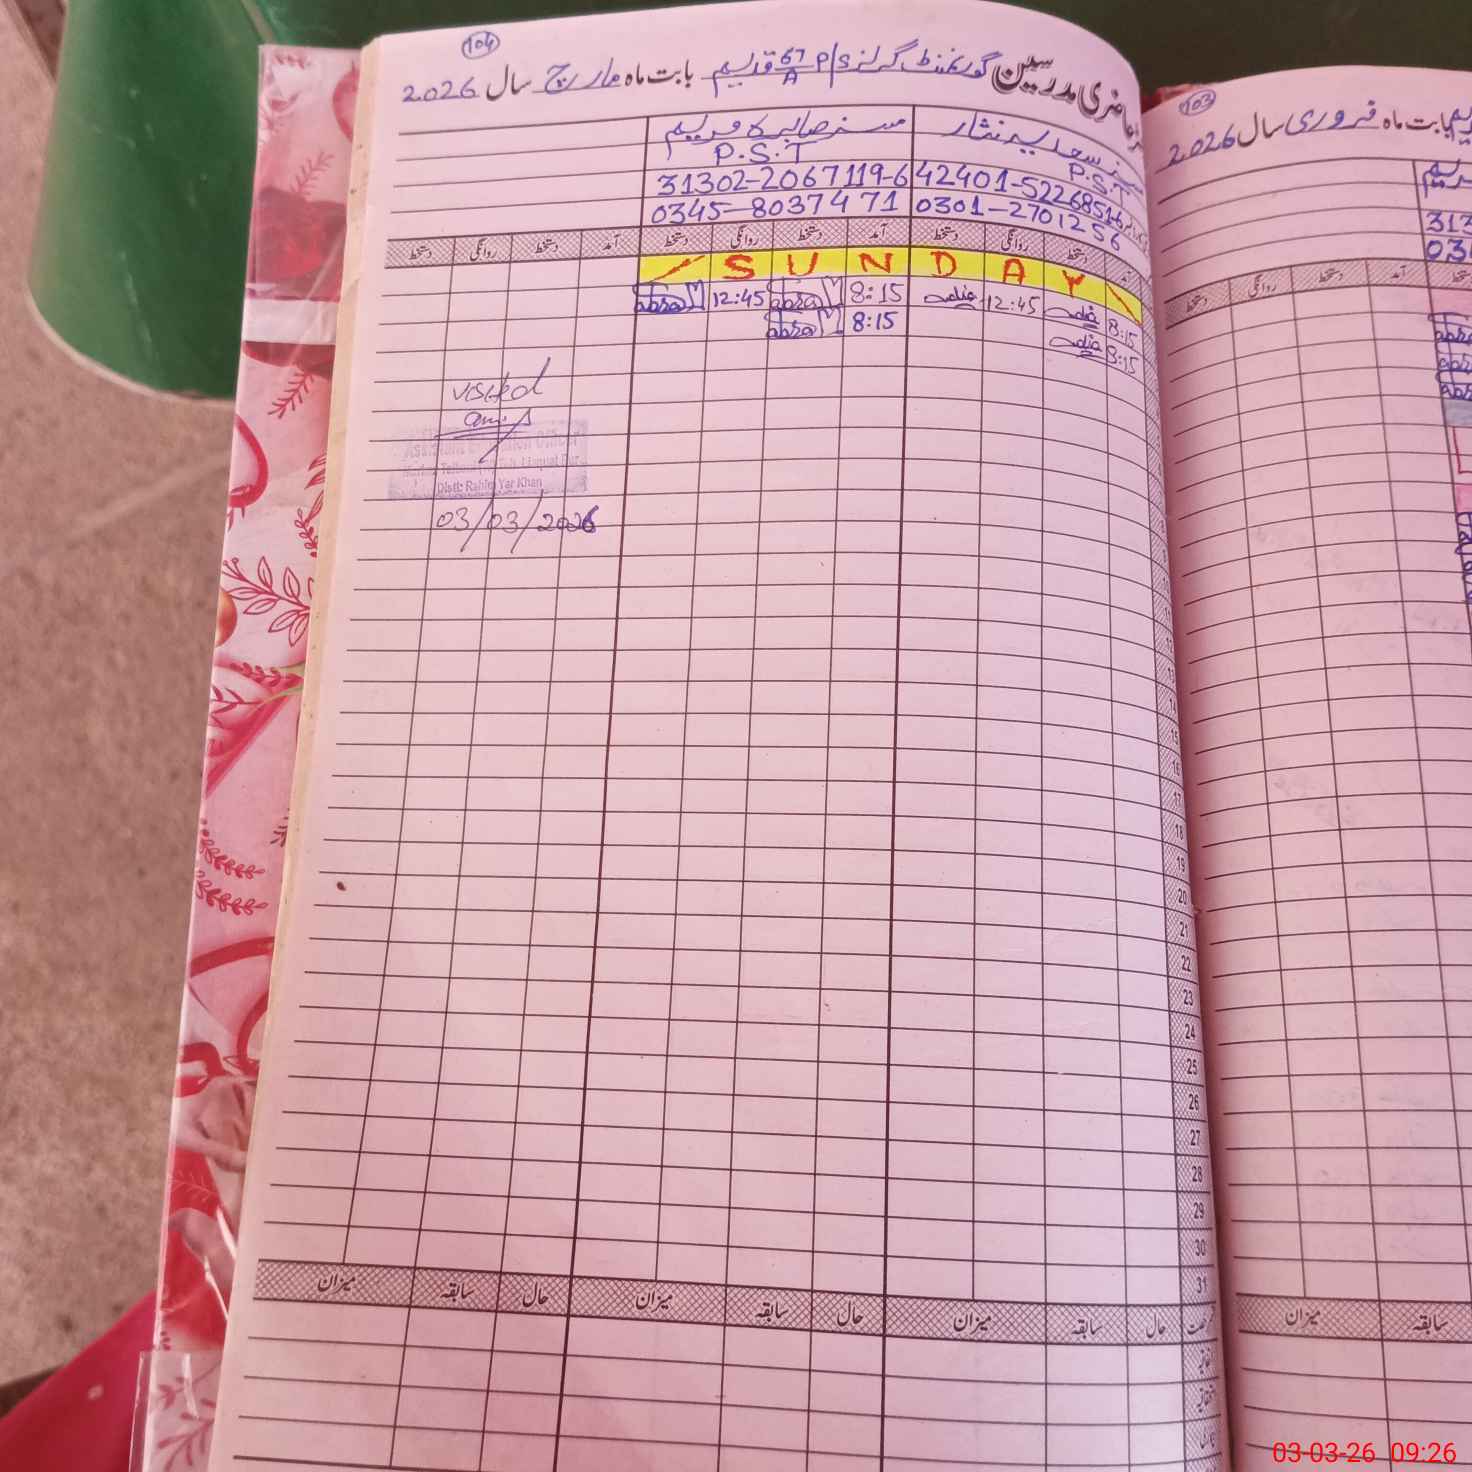 104
حاضری مدرسین گورنمنٹ گرلز P/S 67/A قدیم بابت ماہ مارچ سال 2026
مسز سعدیہ نثار
مسز صابرہ مریم
P.S.T
P.S.T
42401-5226851-6
31302-2067119-6
0301-2701256
0345-8037471
آمد دستخط روانگی دستخط آمد دستخط روانگی دستخط آمد دستخط روانگی دستخط
SUNDAY
8:15 12:45 8:15 12:45
8:15 8:15
visited
Assistant Education Officer
Liaquat Pur
Distt: Rahim Yar Khan
03/03/2026
14
15
16
17
18
19
20
21
22
23
24
25
26
27
28
29
30
31
حال سابقہ میزان حال سابقہ میزان حال سابقہ میزان
103
بابت ماہ فروری سال 2026
مریم
313
03
آمد دستخط روانگی دستخط
سابقہ میزان
03-03-26 09:26